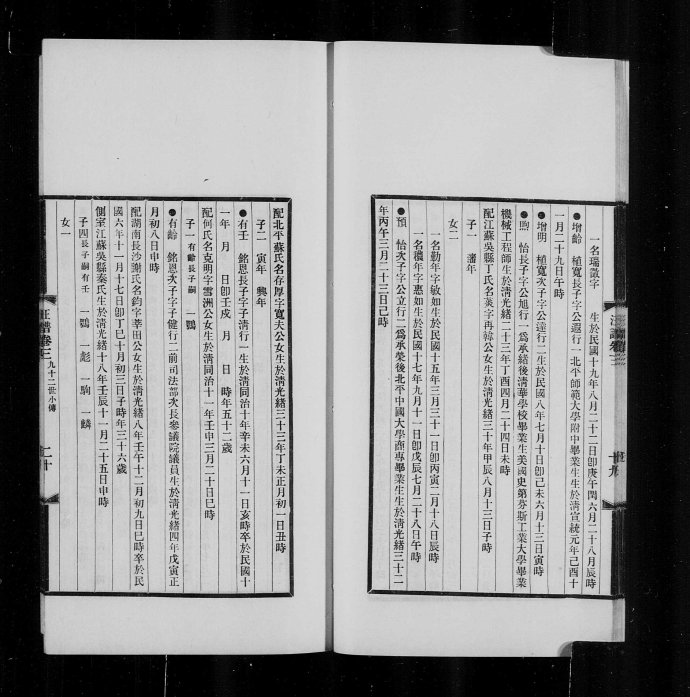 一名瑞徵字　生於民國十九年八月二十二日卽庚午閏六月二十八月辰時
●增齡　植寬長子字公遐行一北平師範大學附中畢業生生於淸宣統元年己酉十
一月二十九日午時
●增明　植寬次子字公達行二生於民國八年七月十日卽己未六月十三日寅時
●煦　怡長子字公旭行一爲承緒後淸華學校畢業生美國史第芬斯工業大學畢業
機械工程師生於淸光緒二十三年丁酉四月二十四日未時
配江蘇吳縣丁氏名漢字再韓公女生於淸光緒三十年甲辰八月十三日子時
子一　濬年
女二
一名勤年字敏如生於民國十五年三月三十一日卽丙寅二月十八日辰時
一名穠年字惠如生於民國十七年九月十一日卽戊辰七月二十八日午時
●預　怡次子字公立行二爲承榮後北平中國大學商專畢業生生於淸光緒三十二
年丙午三月二十三日己時
配北平蘇氏名存厚字寬夫公女生於淸光緒三十三年丁未正月初一日丑時
子二　寅年　興年
●有壬　銘恩長子字子淸行一生於淸同治十年辛未六月十一日亥時卒於民國十
一年　月　日卽壬戌　月　日　時年五十二歲
配何氏名克明字雪洲公女生於淸同治十一年壬申三月二十日巳時
子一有齡長子嗣　一鶚
●有齡　銘恩次子字子健行二前司法部次長參議院議員生於淸光緒四年戊寅正
月初八日申時
配湖南長沙謝氏名鈞字莘田公女生於淸光緒八年壬午十二月初九日巳時卒於民
國六年十一月十七日卽丁巳十月初三日子時年三十六歲
側室江蘇吳縣秦氏生於淸光緒十八年壬辰十一月二十五日申時
子四長子嗣有壬　一鶚　一彪　一駒　一麟
女一
汪譜卷三　九十二世小傳　二十